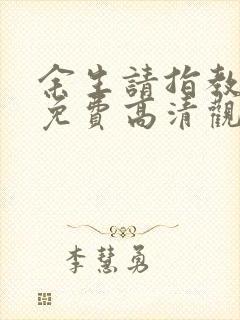 余生請指教
免費高清觀
李慧勇